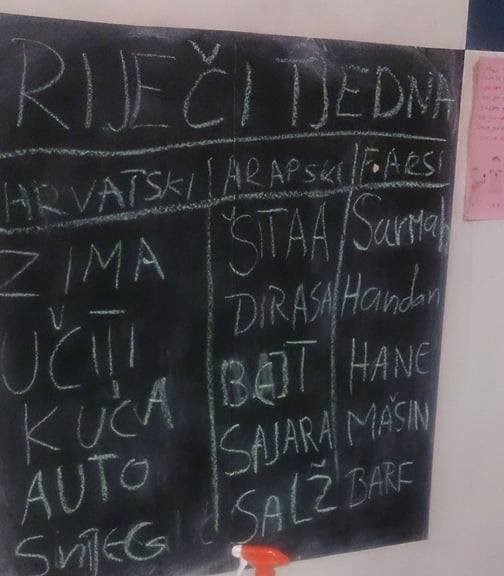 RIJEČI TJEDNA
HRVATSKI ARAPSKI FARSI
ZIMA ŠITAA Sarmah
UČITI DIRASA Handan
KUĆA BEJT HANE
AUTO SAJARA MAŠIN
SNIJEG SALŽ BARF